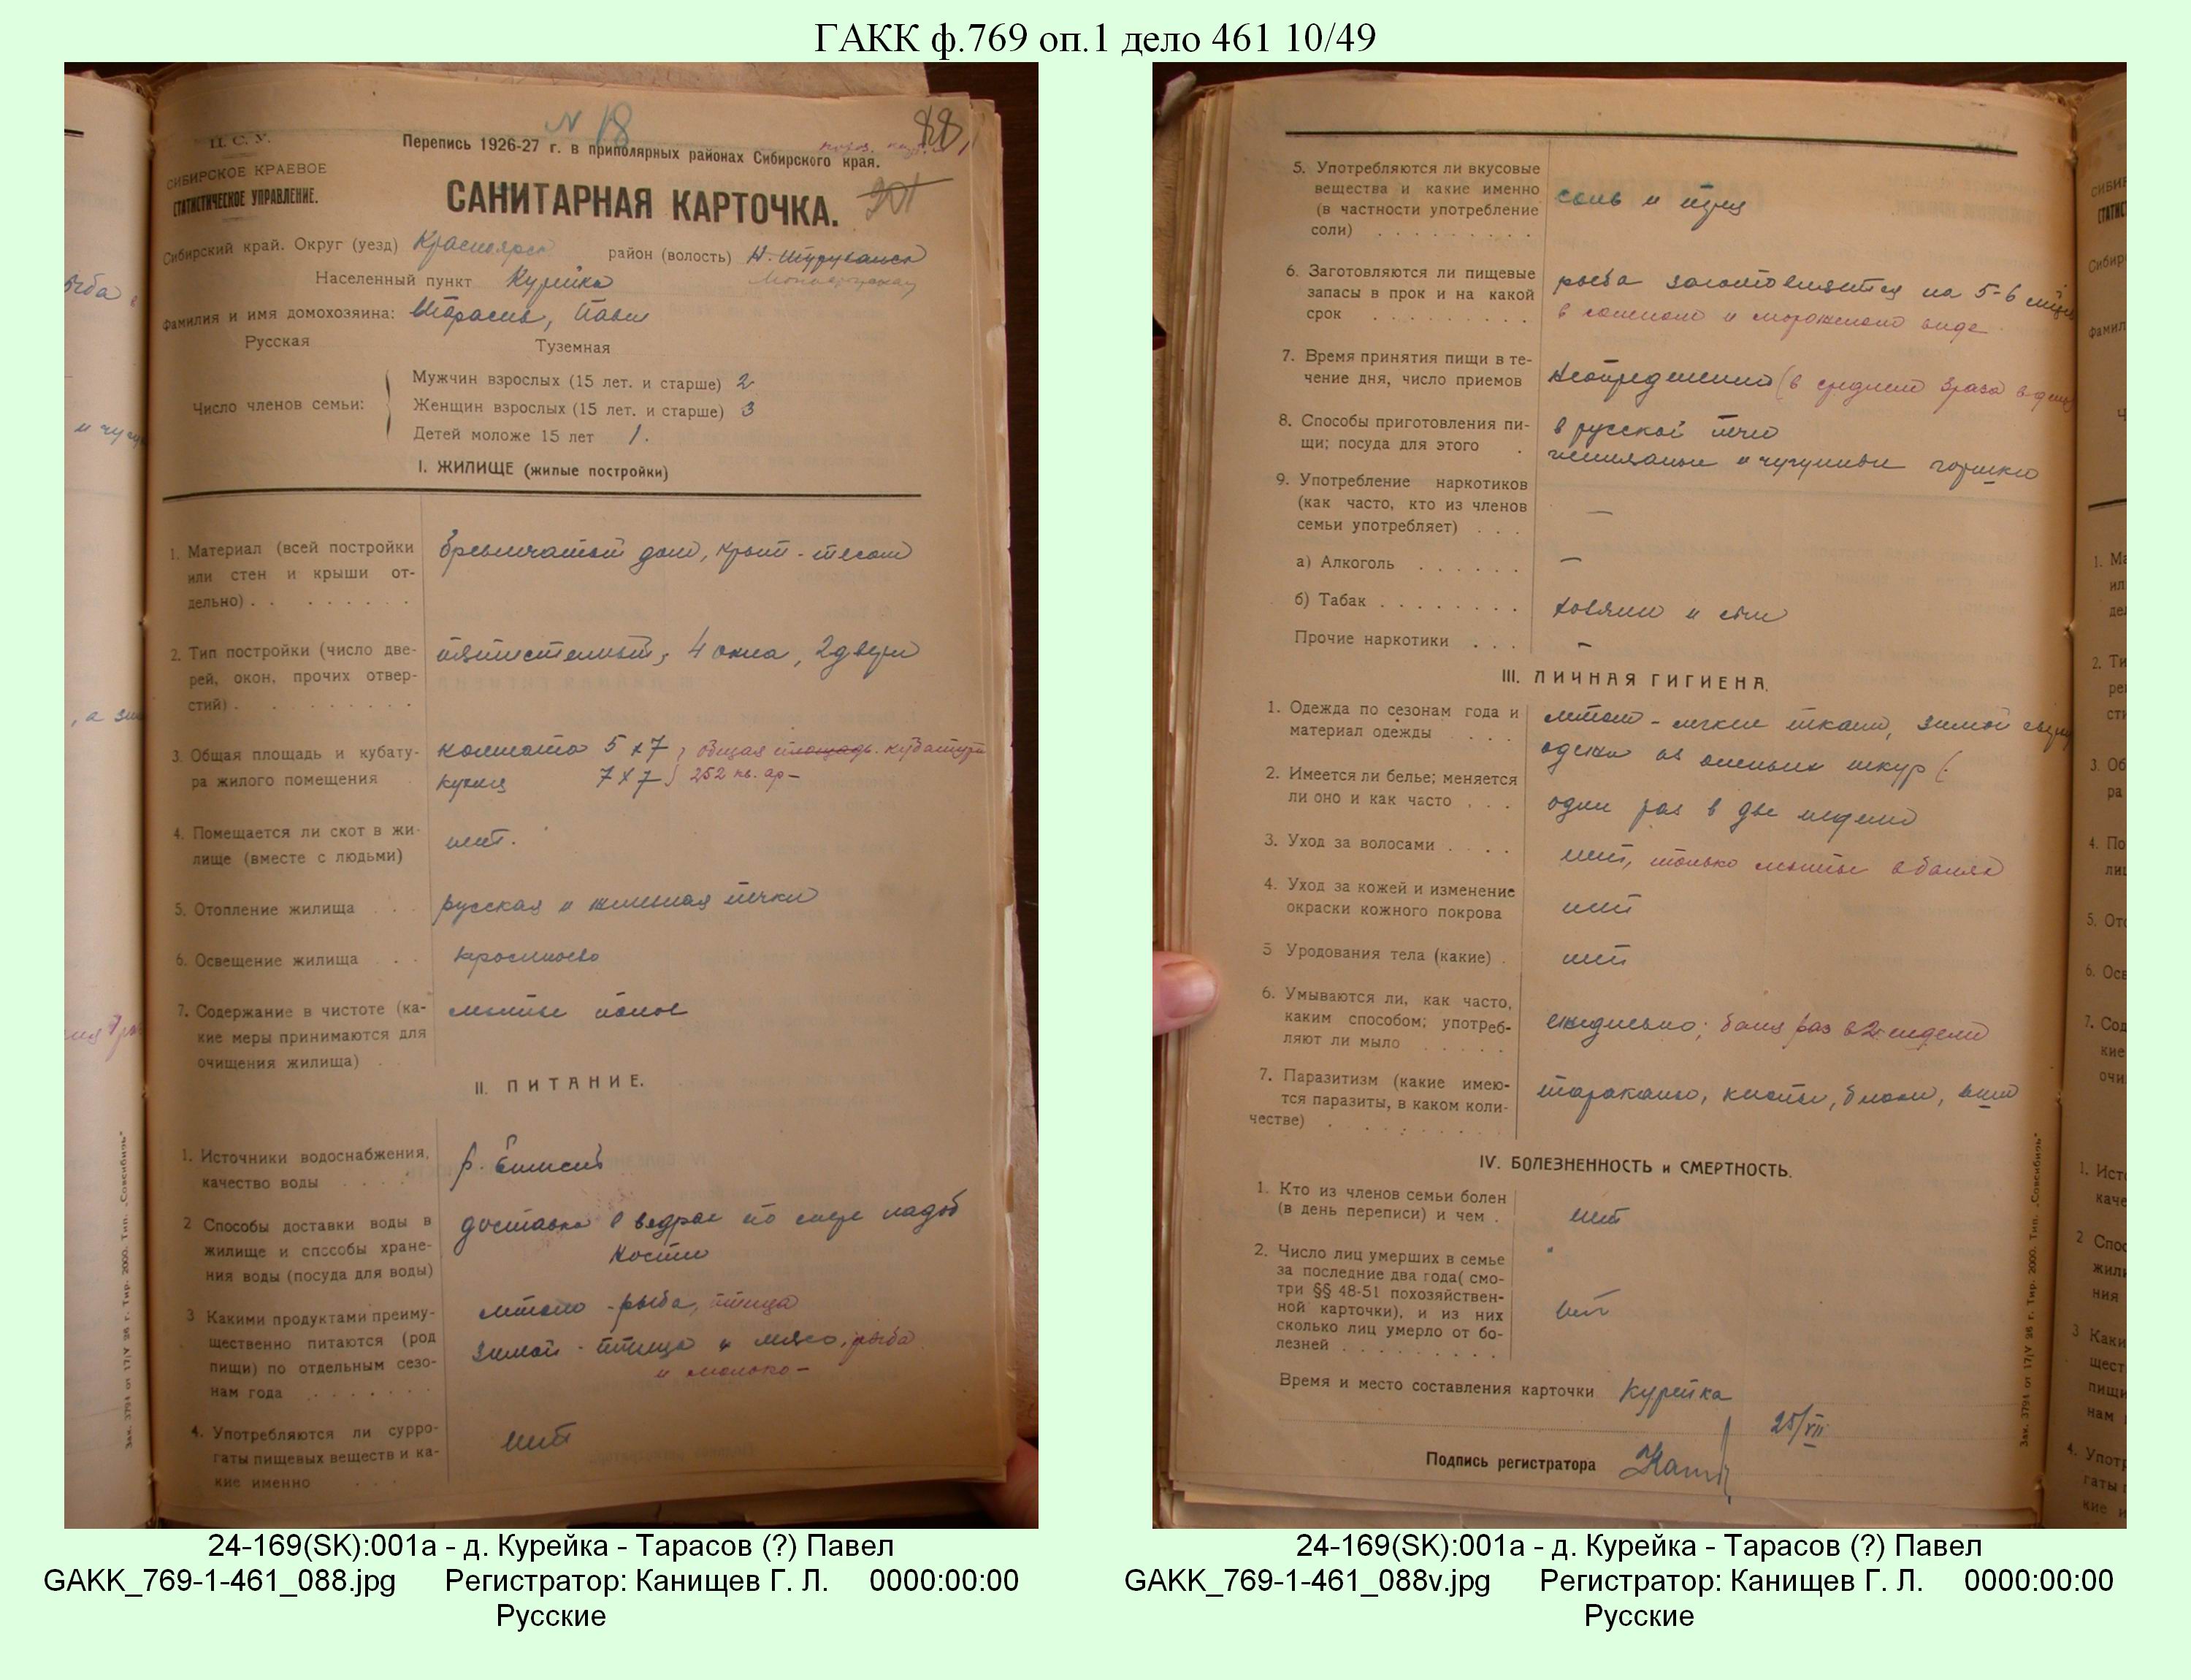 ГАКК ф.769 оп.1 дело 461 10/49
N 18
88
Ц. С. У.
СИБИРСКОЕ КРАЕВОЕ
СТАТИСТИЧЕСКОЕ УПРАВЛЕНИЕ.
Перепись 1926-27 г. в приполярных районах Сибирского края.
САНИТАРНАЯ КАРТОЧКА.
201
Сибирский край. Округ (уезд) Красноярск район (волость)
Населенный пункт Курейка
Фамилия и имя домохозяина: Павел
Русская Туземная
Число членов семьи:
Мужчин взрослых (15 лет. и старше) 2
Женщин взрослых (15 лет. и старше) 3
Детей моложе 15 лет 1.
I. ЖИЛИЩЕ (жилые постройки)
1. Материал (всей постройки
или стен и крыши от-
дельно) . . . . . . . .
бревенчатый дом, крыт - тесом
2. Тип постройки (число две-
рей, окон, прочих отвер-
стий) . . . . . . . . .
пятистенный, 4 окна, 2 двери
3. Общая площадь и кубату-
ра жилого помещения .
комната 5 х 7 общая площадь. кубатура
кухня 7 х 7 252 кв. ар -
4. Помещается ли скот в жи-
лище (вместе с людьми)
нет.
5. Отопление жилища . . .
русская и железная печки
6. Освещение жилища . .
7. Содержание в чистоте (ка-
кие меры принимаются для
очищения жилища) .
мытье полов
II. ПИТАНИЕ.
1. Источники водоснабжения,
качество воды . . . .
р. Енисей
2 Способы доставки воды в
жилище и способы хране-
ния воды (посуда для воды)
доставка в ведрах по мере надоб
ности
3 Какими продуктами преиму-
щественно питаются (род
пищи) по отдельным сезо-
нам года . . . . . . .
летом - рыба, птица
зимой - птица и мясо, рыба
и молоко -
4. Употребляются ли сурро-
гаты пищевых веществ и ка-
кие именно . . .
нет
Зак. 3791 от 17/V 26 г. Тир. 2000. Тип. „Совсибирь"
24-169(SK):001a - д. Курейка - Тарасов (?) Павел
GAKK_769-1-461_088.jpg Регистратор: Канищев Г. Л. 0000:00:00
Русские
5. Употребляются ли вкусовые
вещества и какие именно
(в частности употребление
соли) . . . . . . . . .
соль и перец
6. Заготовляются ли пищевые
запасы в прок и на какой
срок . . . . . . . . .
рыба заготовляется на 5-6
в соленом и мороженом виде
7. Время принятия пищи в те-
чение дня, число приемов
Неопределенно (в среднем 3 раза в день)
8. Способы приготовления пи-
щи; посуда для этого .
в русской печи
и чугунные горшки
9. Употребление наркотиков
(как часто, кто из членов
семьи употребляет) . . .
—
а) Алкоголь . . . . . .
—
б) Табак . . . . . . . .
хозяин и сын
Прочие наркотики . . .
—
III. ЛИЧНАЯ ГИГИЕНА.
1. Одежда по сезонам года и
материал одежды . . . .
летом - легкие ткани, зимой
одежа из оленьих шкур
2. Имеется ли белье; меняется
ли оно и как часто . . .
один раз в две недели
3. Уход за волосами . . . .
нет, только мытье в банях
4. Уход за кожей и изменение
окраски кожного покрова
нет
5 Уродования тела (какие) .
нет
6. Умываются ли, как часто,
каким способом; употреб-
ляют ли мыло . . . . .
ежедневно; баня раз в 2 недели
7. Паразитизм (какие имею-
тся паразиты, в каком коли-
честве) . . . . . . . . .
тараканы, клопы, блохи, вши
IV. БОЛЕЗНЕННОСТЬ и СМЕРТНОСТЬ.
1. Кто из членов семьи болен
(в день переписи) и чем .
нет
2. Число лиц умерших в семье
за последние два года( смо-
три §§ 48-51 похозяйствен-
ной карточки), и из них
сколько лиц умерло от бо-
лезней . . . . . . . . .
нет
Время и место составления карточки Курейка
25/VII
Подпись регистратора
Зак. 3791 от 17/V 26 г. Тир. 2000. Тип. „Совсибирь"
24-169(SK):001a - д. Курейка - Тарасов (?) Павел
GAKK_769-1-461_088v.jpg Регистратор: Канищев Г. Л. 0000:00:00
Русские